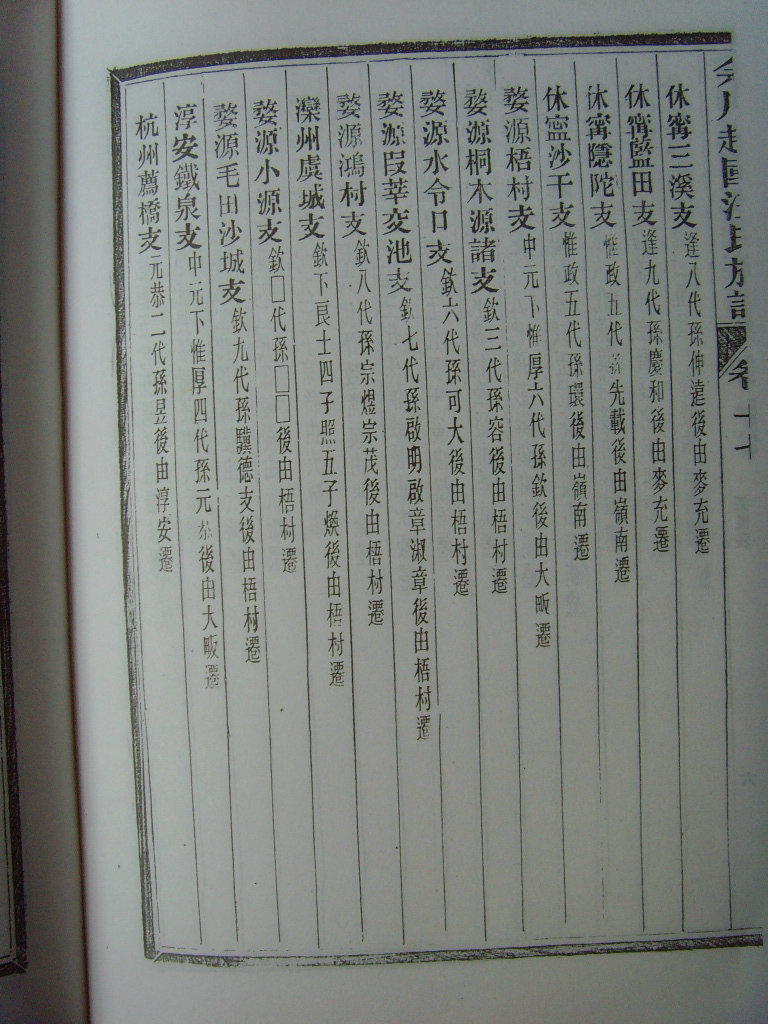 越國汪氏族譜 卷十七
休甯三溪支 逢八代孫伸遠後由麥充遷
休甯藍田支 逢九代孫慶和後由麥充遷
休甯隱陀支 惟政五代孫先載後由嶺南遷
休甯沙干支 惟政五代孫環後由嶺南遷
婺源梧村支 中元下惟厚六代孫欽後由大畈遷
婺源桐木源諸支 欽三代孫容後由梧村遷
婺源水令口支 欽六代孫可大後由梧村遷
婺源段莘交池支 欽七代孫啟明啟章淑章後由梧村遷
婺源鴻村支 欽八代孫宗煜宗茂後由梧村遷
灤州虞城支 欽下良士四子照五子煥後由梧村遷
婺源小源支 欽□代孫□□後由梧村遷
婺源毛田沙城支 欽九代孫驥德支後由梧村遷
淳安鐵泉支 中元下惟厚四代孫元恭後由大畈遷
杭州薦橋支 元恭二代孫昱後由淳安遷